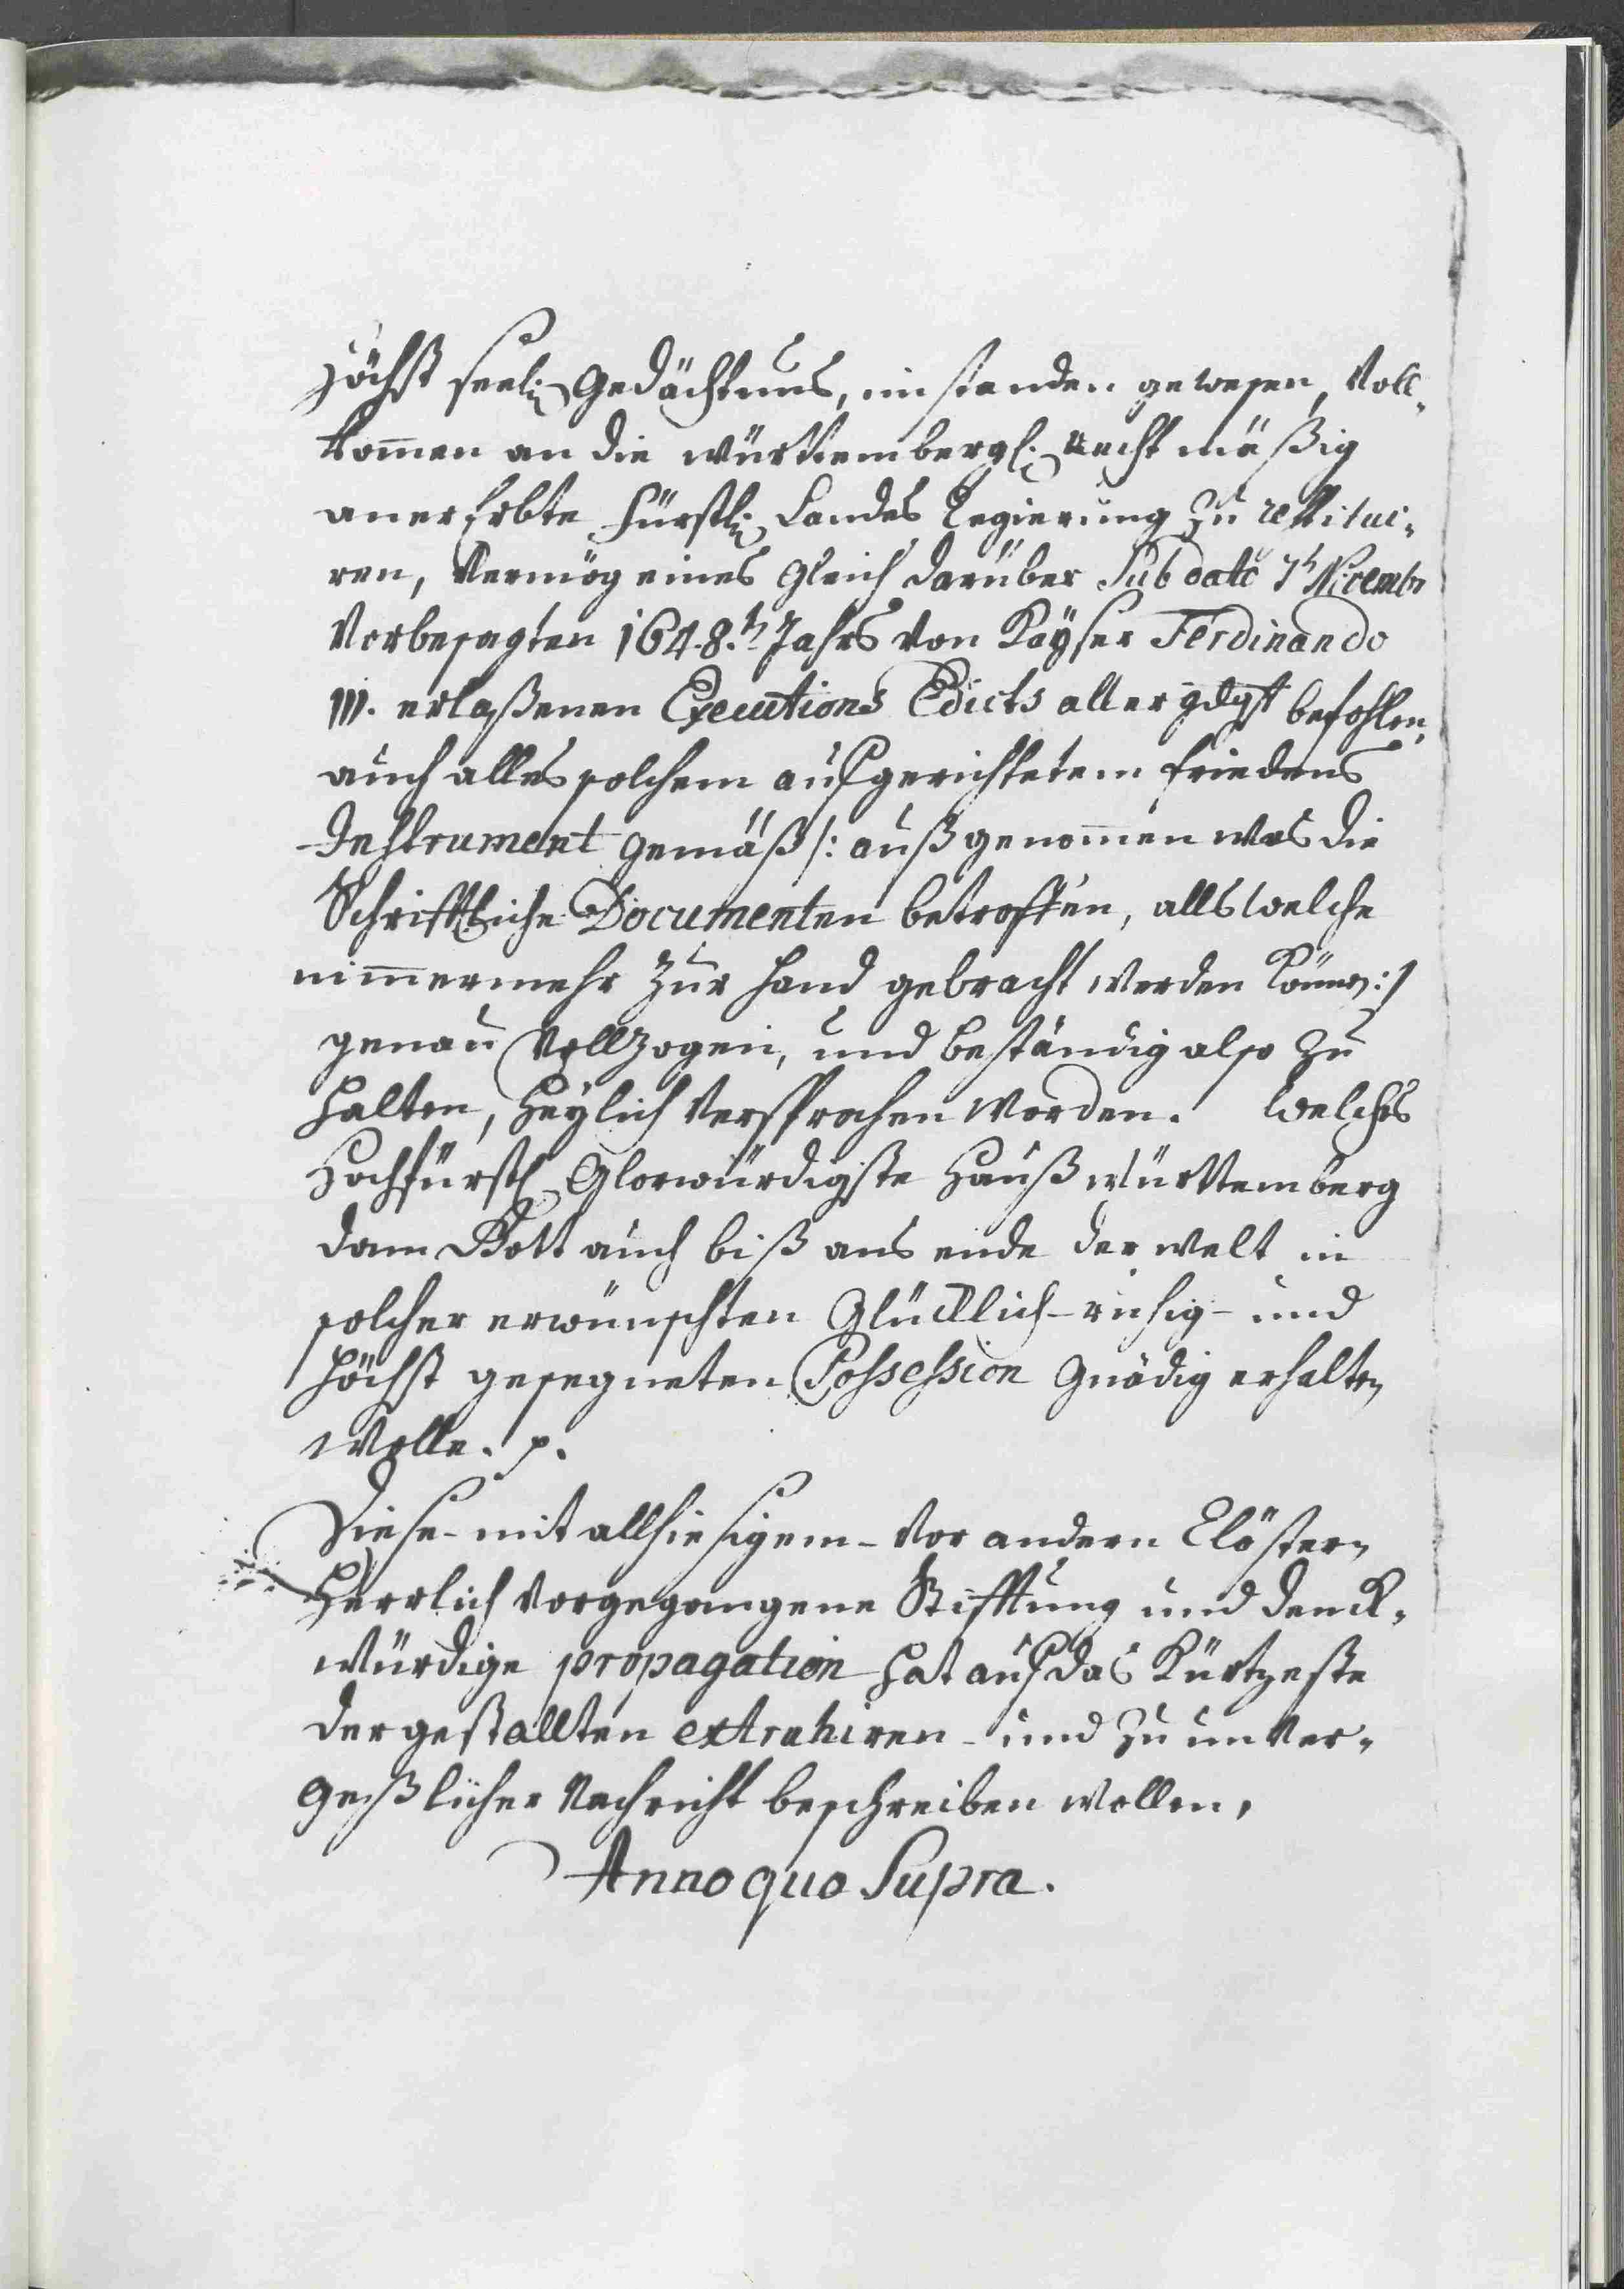 Höchst seel: Gedächtnus, im standen gewesen, Voll-
kom̄en an die württembergl: recht mäßig
anererbte Fürstl: Landes Regierung zu restitui-
ren, Vermög eines gleich darüber Sub dato 7.
Vorbesagten 1648.tn Jahrs von Kayser Ferdinando
III. erlaßenen Executions Edicts allergdgst befohlen,
auch alles solchem aufgerichtetem friedens
Instrument gemäß /: außgenom̄en was die
Schrifftliche Documenten betroffen, alls welche
nim̄ermehr zur hand gebracht werden können :/
genau Vollzogen, und beständig also zu
halten, Heylich Versprochen worden. Welches
Hochfürstl Glorwürdigste Hauß Württemberg
dann Gott auch biß ans ende der welt in
solcher erwünschten Glücklich- ruhig- und
höchst gesegneten Possession Gnädig erhalten
Wolle. p.
Diese- mit allhiesigem- Vor andern Clöstern
Herrlich Vorgegangene Stifftung und denck-
würdige propagation hat auf das Kürtzeste
dergestallten extrahiren- und zu unver-
geßlicher Nachricht beschreiben wollen,
Anno quo Supra.